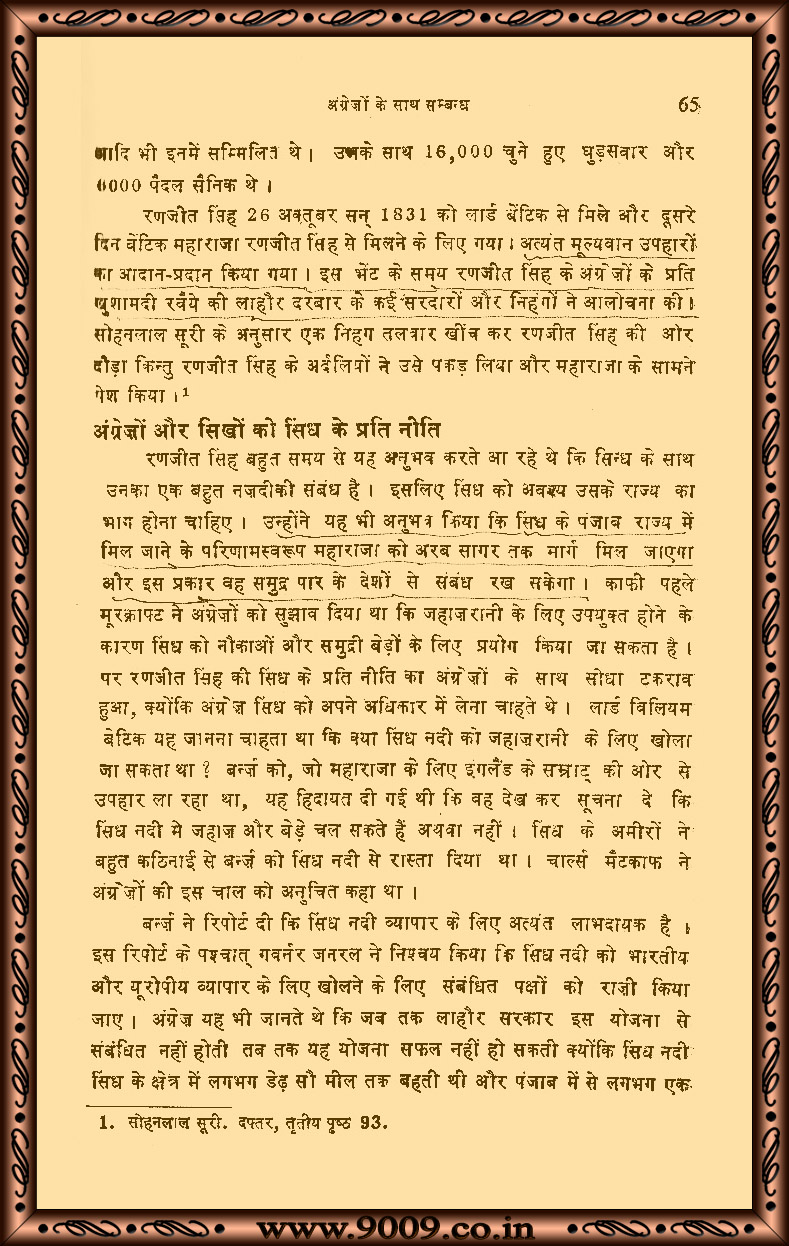 अंग्रेज़ों के साथ सम्बन्ध 65
आदि भी इनमें सम्मिलित थे। उनके साथ 16,000 चुने हुए घुड़सवार और
6000 पैदल सैनिक थे।
रणजीत सिंह 26 अक्तूबर सन् 1831 को लार्ड बेंटिक से मिले और दूसरे
दिन बेंटिक महाराजा रणजीत सिंह से मिलने के लिए गया। अत्यंत मूल्यवान उपहारों
का आदान-प्रदान किया गया। इस भेंट के समय रणजीत सिंह के अंग्रेज़ों के प्रति
खुशामदी रवैये की लाहौर दरबार के कई सरदारों और निहंगों ने आलोचना की।
सोहनलाल सूरी के अनुसार एक निहग तलवार खींच कर रणजीत सिंह की ओर
दौड़ा किन्तु रणजीत सिंह के अर्दलियों ने उसे पकड़ लिया और महाराजा के सामने
पेश किया।1
अंग्रेज़ों और सिखों को सिंध के प्रति नीति
रणजीत सिंह बहुत समय से यह अनुभव करते आ रहे थे कि सिन्ध के साथ
उनका एक बहुत नज़दीकी संबंध है। इसलिए सिंध को अवश्य उसके राज्य का
भाग होना चाहिए। उन्होंने यह भी अनुभव किया कि सिंध के पंजाब राज्य में
मिल जाने के परिणामस्वरूप महाराजा को अरब सागर तक मार्ग मिल जाएगा
और इस प्रकार वह समुद्र पार के देशों से संबंध रख सकेगा। काफी पहले
मूरक्राफ्ट ने अंग्रेज़ों को सुझाव दिया था कि जहाज़रानी के लिए उपयुक्त होने के
कारण सिंध को नौकाओं और समुद्री बेड़ों के लिए प्रयोग किया जा सकता है।
पर रणजीत सिंह की सिंध के प्रति नीति का अंग्रेज़ों के साथ सीधा टकराव
हुआ, क्योंकि अंग्रेज़ सिंध को अपने अधिकार में लेना चाहते थे। लार्ड विलियम
बेटिक यह जानना चाहता था कि क्या सिंध नदी को जहाज़रानी के लिए खोला
जा सकता था? बर्न्ज़ को, जो महाराजा के लिए इंगलैंड के सम्राट् की ओर से
उपहार ला रहा था, यह हिदायत दी गई थी कि वह देख कर सूचना दे कि
सिंध नदी मे जहाज़ और बेड़े चल सकते हैं अथवा नहीं। सिंध के अमीरों ने
बहुत कठिनाई से बर्न्ज़ को सिंध नदी से रास्ता दिया था। चार्ल्स मैटकाफ ने
अंग्रेज़ों की इस चाल को अनुचित कहा था।
बर्न्ज़ ने रिपोर्ट दी कि सिंध नदी व्यापार के लिए अत्यंत लाभदायक है।
इस रिपोर्ट के पश्चात् गवर्नर जनरल ने निश्चय किया कि सिंध नदी को भारतीय
और यूरोपीय व्यापार के लिए खोलने के लिए संबंधित पक्षों को राज़ी किया
जाए। अंग्रेज़ यह भी जानते थे कि जब तक लाहौर सरकार इस योजना से
संबंधित नहीं होती तब तक यह योजना सफल नहीं हो सकती क्योंकि सिंध नदी
सिंध के क्षेत्र में लगभग डेढ़ सौ मील तक बहती थी और पंजाब में से लगभग एक
1. सोहनलाल सूरी. दफ्तर, तृतीय पृष्ठ 93.
www.9009.co.in